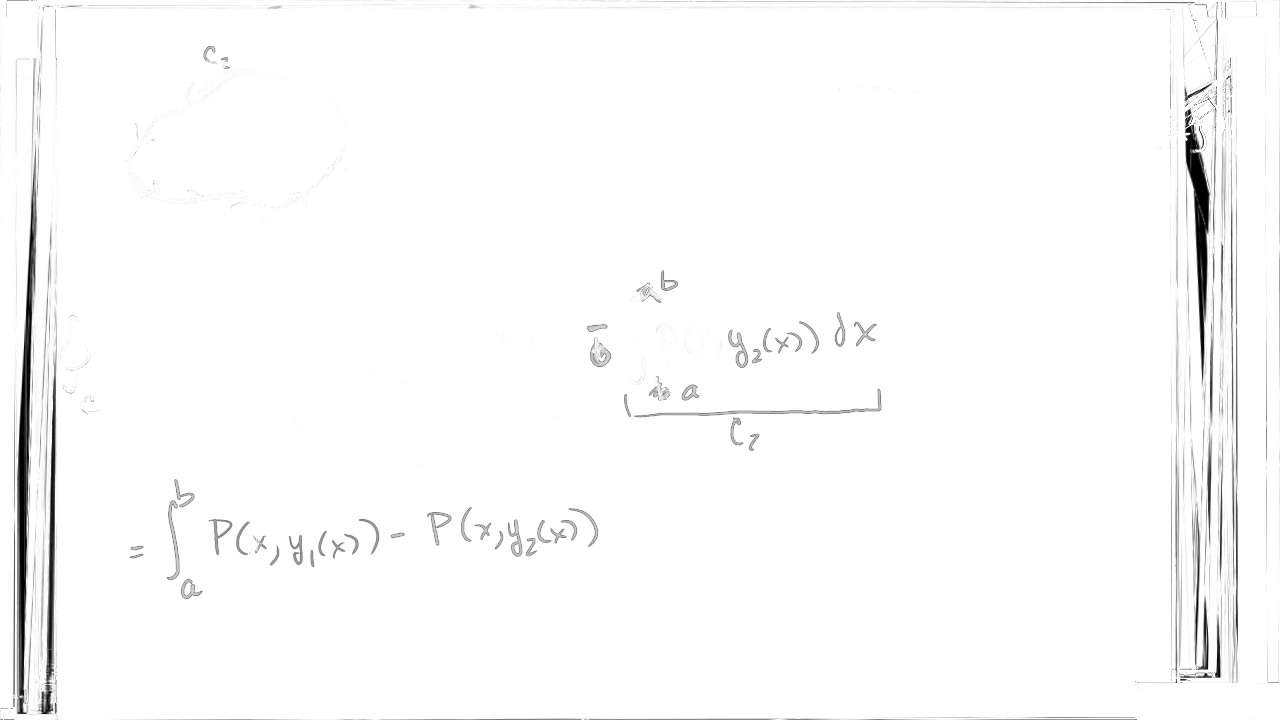 C₂
b
− ∫ P(x, y₂(x)) dx
a
C₂
= ∫ₐᵇ P(x, y₁(x)) − P(x, y₂(x))